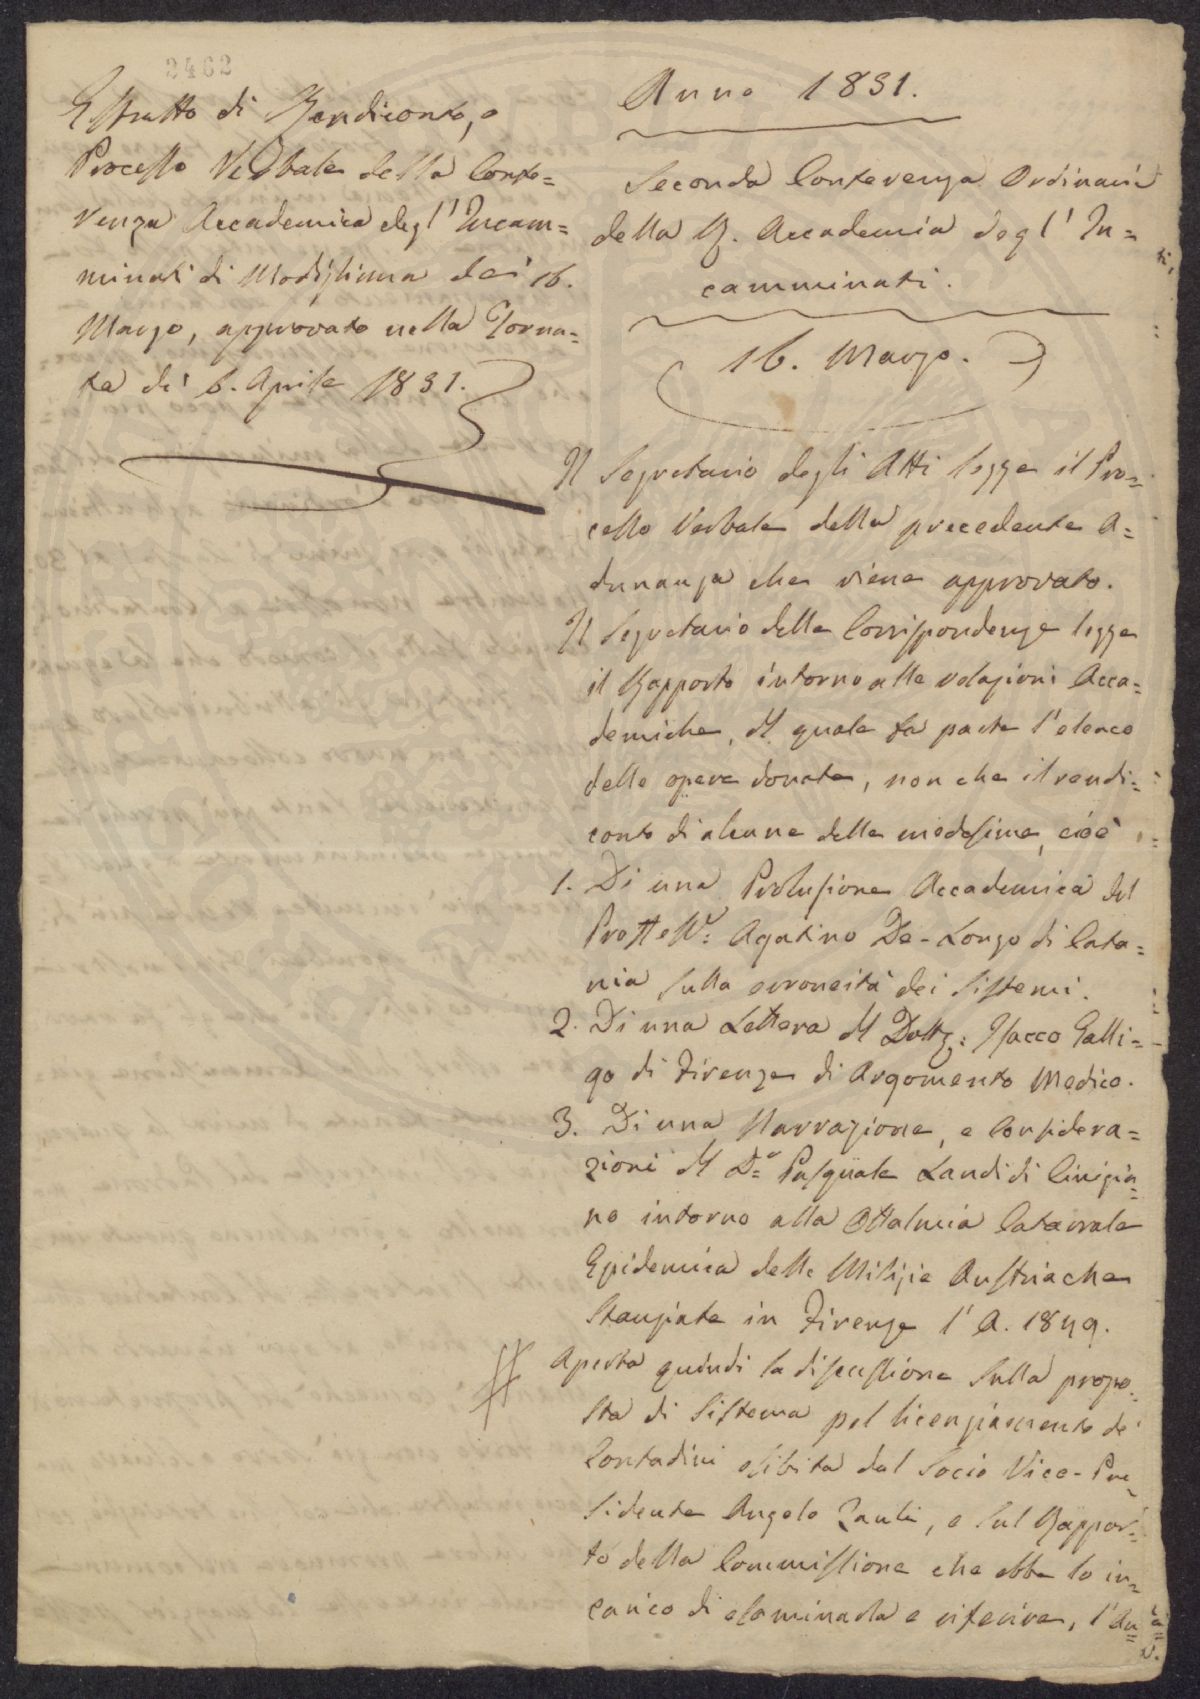 2462
Estratto di Rendiconto, o
Processo Verbale della Confe=
renza Accademica degl' Incam=
minati di Modigliana dei 16.
Marzo, approvato nella Torna=
ta de' 6. Aprile 1851.
Anno 1851.
Seconda Conferenza Ordinaria
della R. Accademia degl' In=
camminati.
16. Marzo.
Il Segretario degli Atti legge il Pro=
cesso Verbale della precedente A=
dunanza che viene approvato.
Il Segretario delle Corrispondenze legge
il Rapporto intorno alle relazioni Acca=
demiche, del quale fa parte l'elenco
delle opere donate, non che il rendi=
conto di alcune delle medesime, cioè
1. Di una Prolusione Accademica del
Proffessr: Agatino De-Longo di Cata=
nia sulla erroneità dei Sistemi.
2. Di una Lettera del Dottr: Isacco Galli=
go di Firenze di Argomento Medico.
3. Di una Narrazione, e Considera=
zioni del Dr. Pasquale Landi di Cinigia=
no intorno alla Ottalmia Catarrale
Epidemica delle Milizie Austriache
Stanziate in Firenze l'A. 1849.
Aperta quindi la discussione sulla propo=
sta di Sistema pel licenziamento de'
Contadini esibita dal Socio Vice-Pre=
sidente Angelo Zauli, e sul Rappor=
to della Commissione che ebbe lo in=
carico di esaminarla e riferire, l'Au=